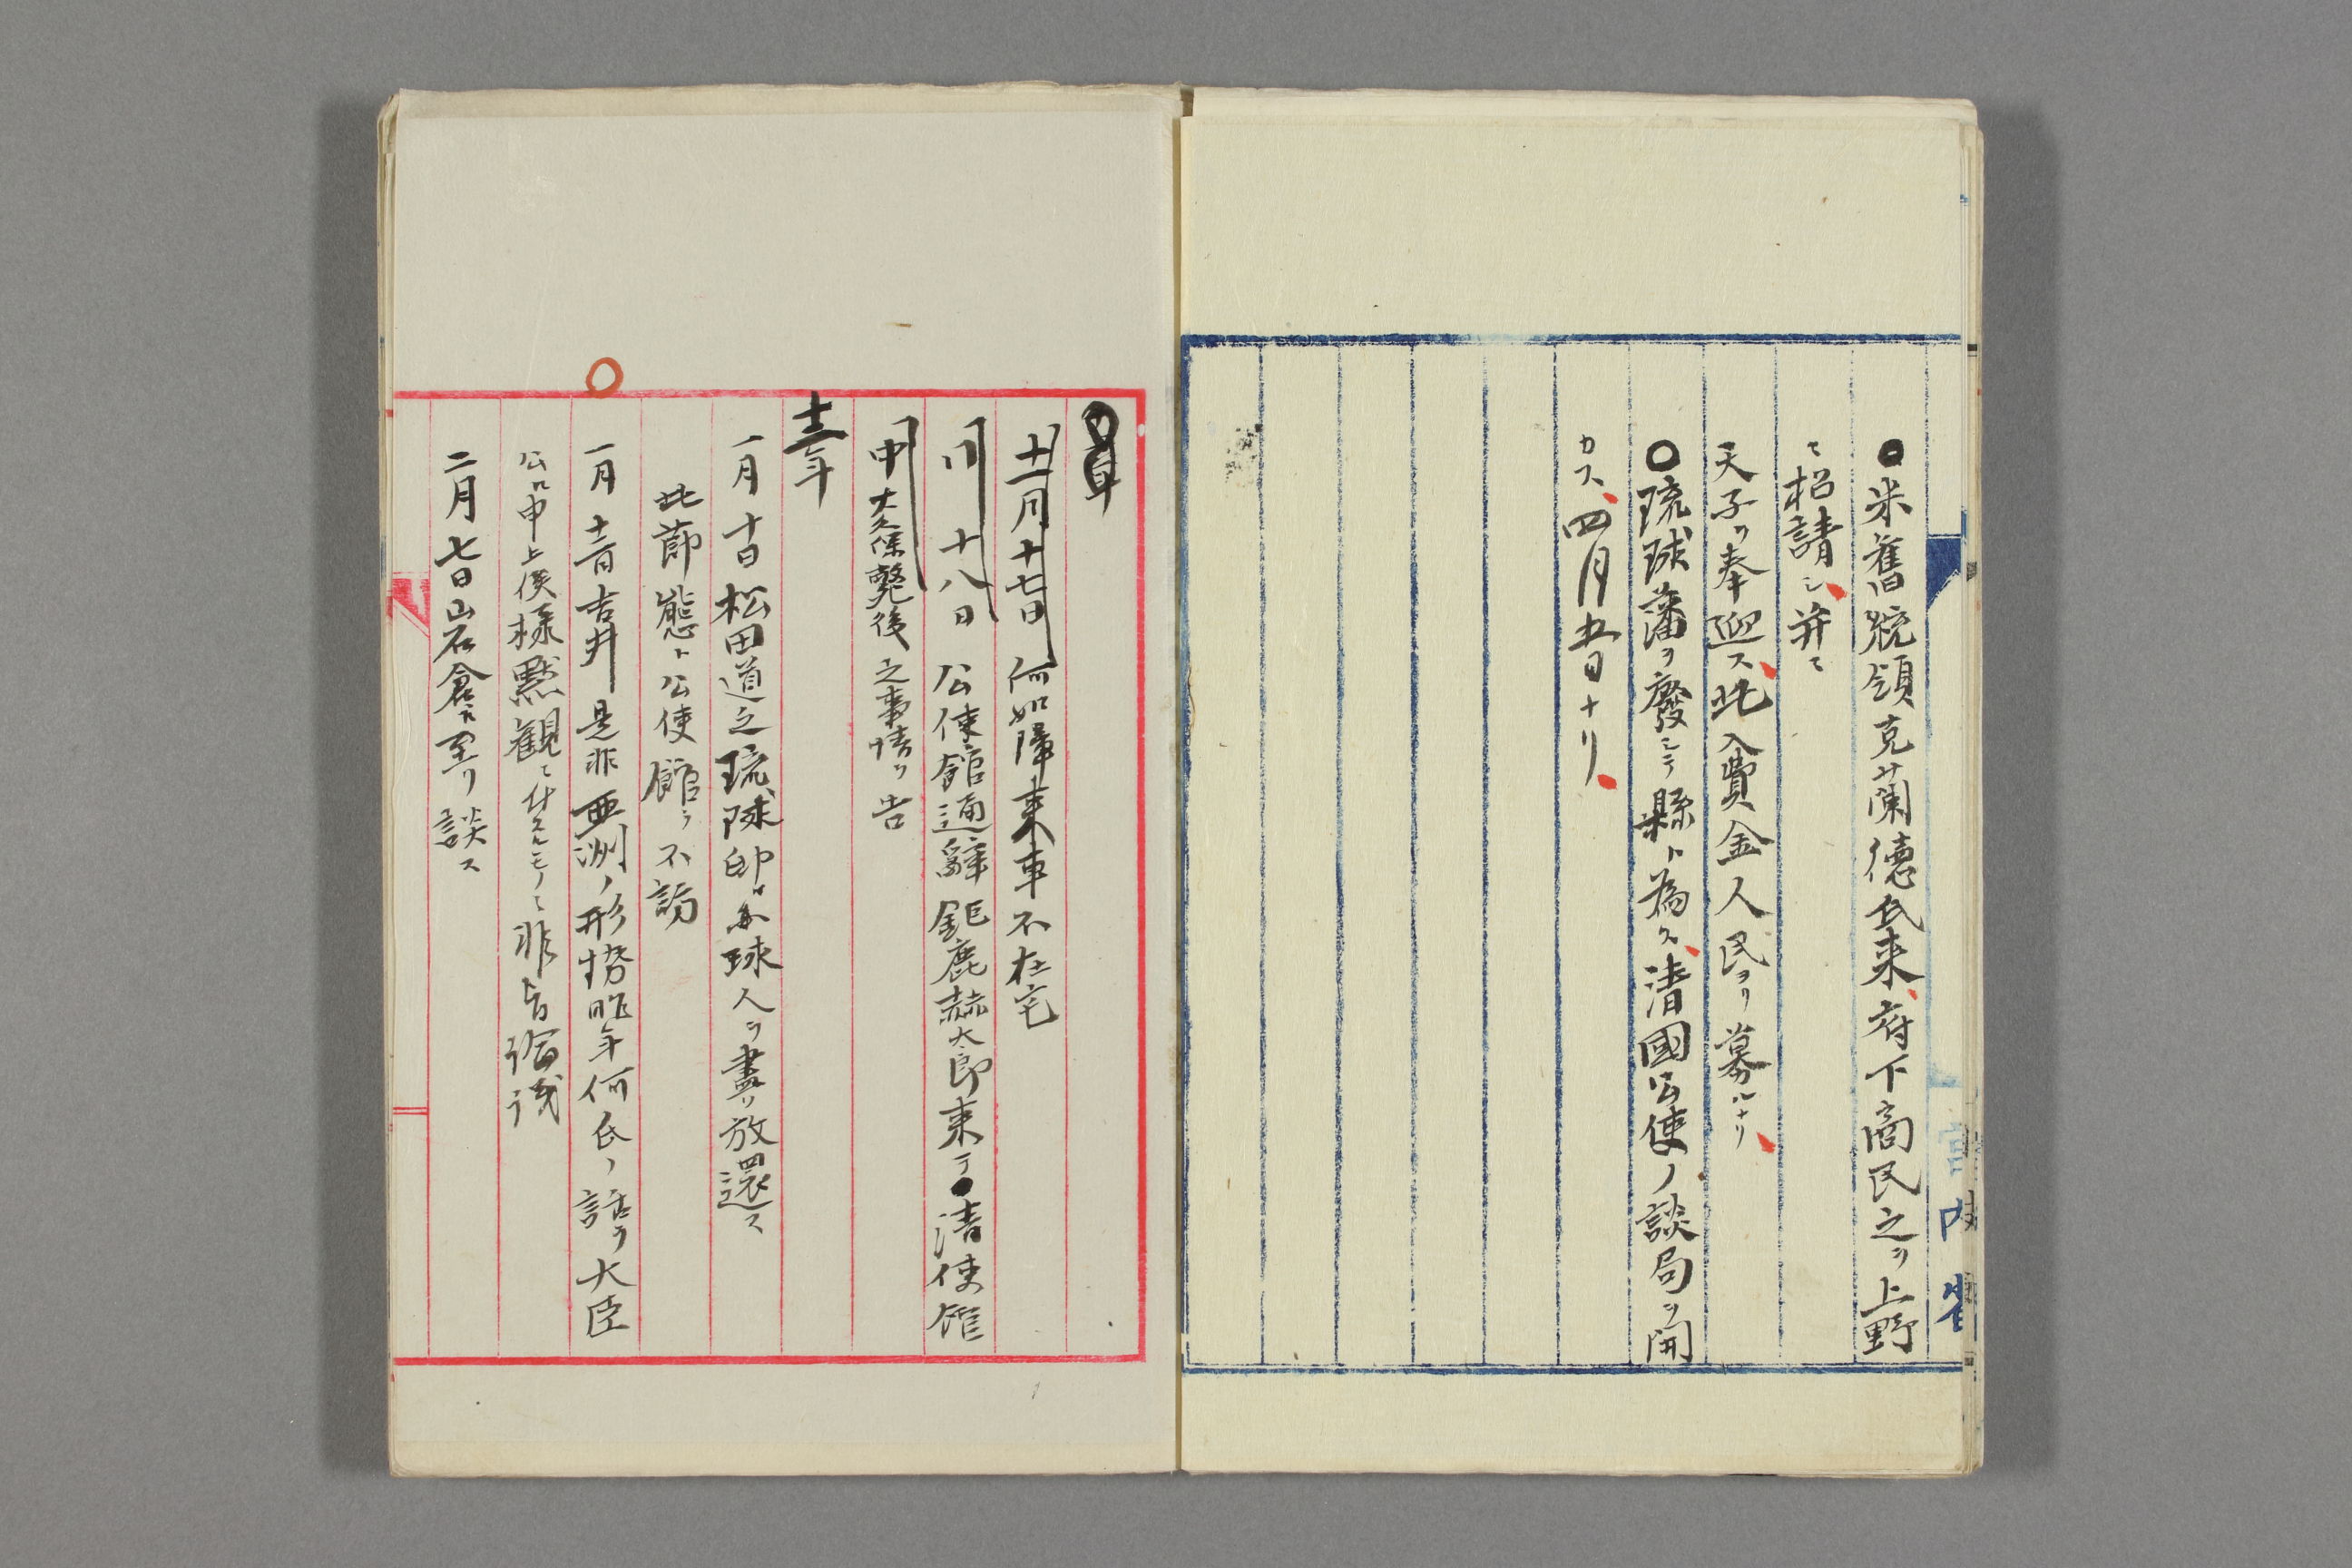 ●米舊統領克蘭德氏来、府下商民之ヲ上野
ニ招請シ、并ニ
天子ヲ奉迎ス、此入費金人民ヨリ募ルナリ、
○琉球藩ヲ廢シテ縣ト為ス、清國公使ノ談局ヲ開
カス、四月五日ナリ、
宮内省
十一月十七日 何如璋来車不在宅
十八日 公使館通辭鉅鹿赫太郎来テ●清使館
申大久保斃後之事情ヲ告
十二年
一月十日松田道之琉球帥ヰ球人ヲ盡ク放還ス
此節態ト公使館ヲ不訪
一月十二日吉井 是非亜洲ノ形勢昨年何氏ノ話ヲ大臣
公ニ申上候様黙観ニ付スルモノニ非ト論議
二月七日岩倉ニ至リ談ス